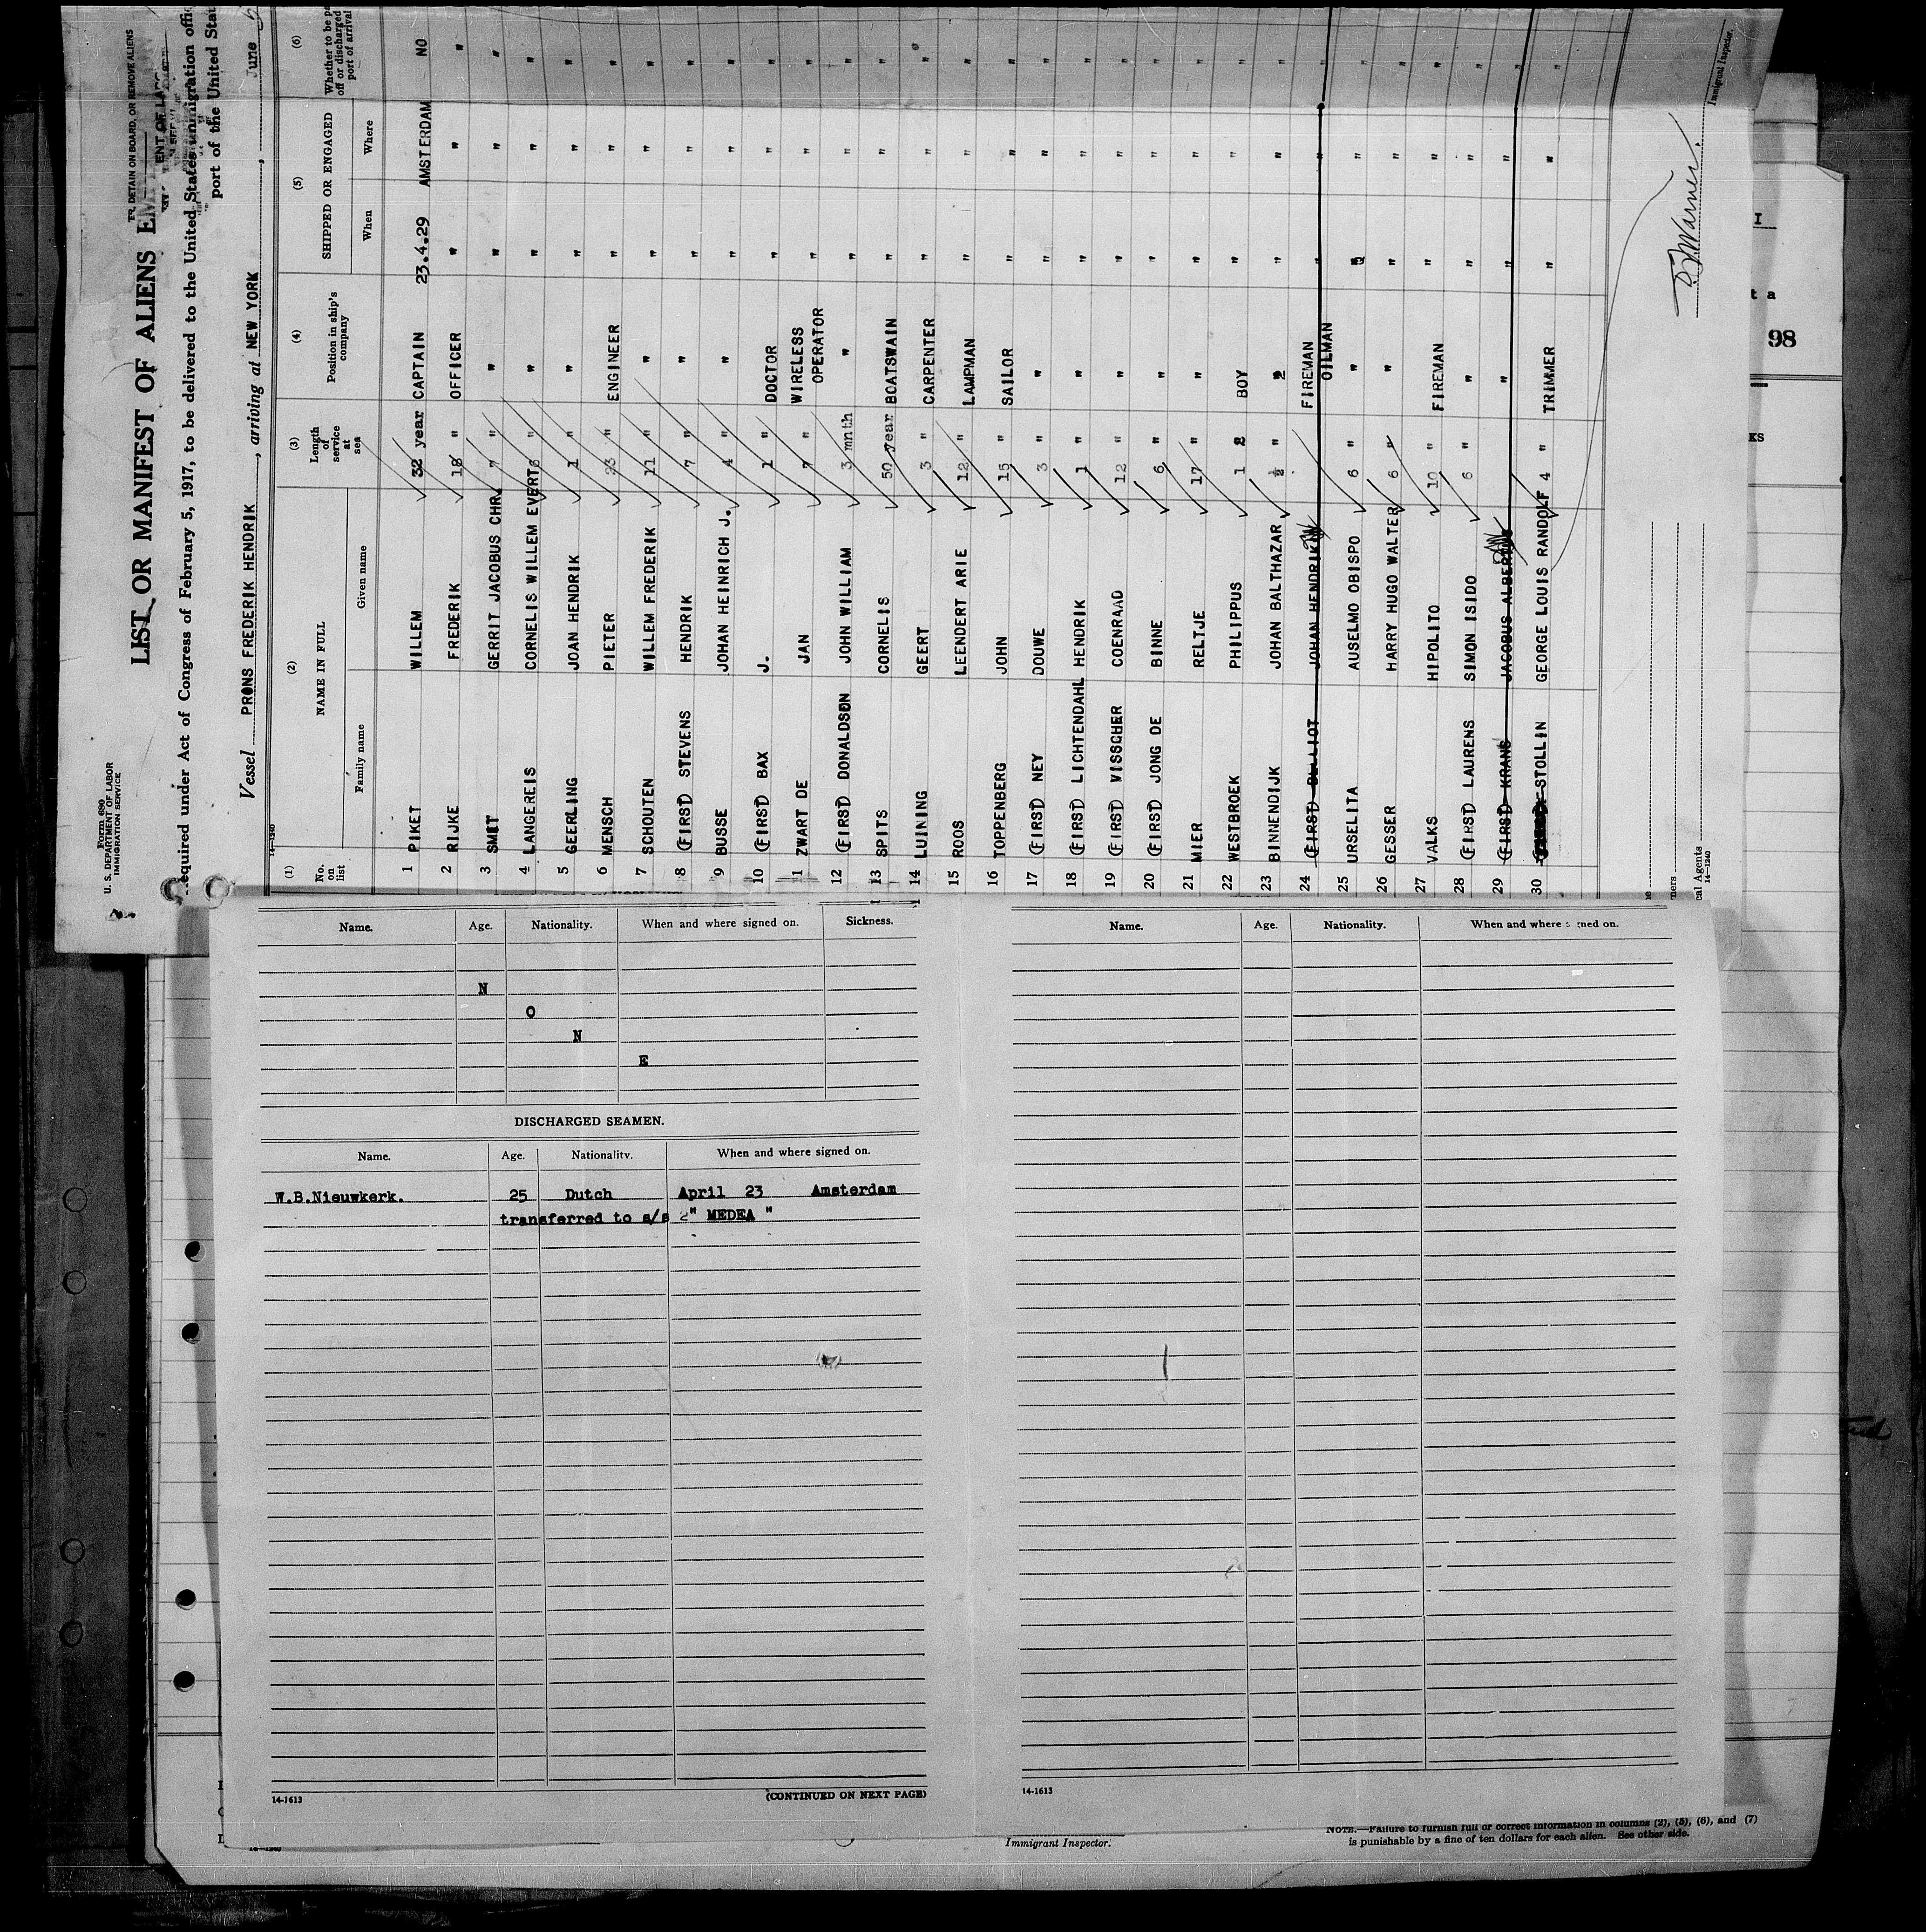 Form 680
U. S. DEPARTMENT OF LABOR
IMMIGRATION SERVICE
DETAIN ON BOARD, OR REMOVE ALIENS
LIST OR MANIFEST OF ALIENS
equired under Act of Congress of February 5, 1917, to be delivered to the United States immigration offi
port of the United Stat
Vessel PRONS FREDERIK HENDRIK, arriving at NEW YORK, June 5
14-1240
(1) (2) (3) (4) (5) (6)
No. on list NAME IN FULL Length of service at sea Position in ship's company SHIPPED OR ENGAGED Whether to be pa off or discharged port of arrival
Family name Given name When Where
1 PIKET WILLEM 32 year CAPTAIN 23.4.29 AMSTERDAM NO
2 RIJKE FREDERIK 18 " OFFICER " " "
3 SMIT GERRIT JACOBUS CHR. 7 " " " " "
4 LANGEREIS CORNELIS WILLEM EVERT 6 " " " " "
5 GEERLING JOAN HENDRIK 1 " " " " "
6 MENSCH PIETER 23 " ENGINEER " " "
7 SCHOUTEN WILLEM FREDERIK 11 " " " " "
8 (FIRST) STEVENS HENDRIK 7 " " " " "
9 BUSSE JOHAN HEINRICH J. 4 " " " " "
10 (FIRST) BAX J. 1 " DOCTOR " " "
1 ZWART DE JAN 7 " WIRELESS OPERATOR " " "
12 (FIRST) DONALDSON JOHN WILLIAM 3 mnth " " " "
13 SPITS CORNELIS 50 year BOATSWAIN " " "
14 LUINING GEERT 3 " CARPENTER " " "
15 ROOS LEENDERT ARIE 12 " LAMPMAN " " "
16 TOPPENBERG JOHN 15 " SAILOR " " "
17 (FIRST) NEY DOUWE 3 " " " " "
18 (FIRST) LICHTENDAHL HENDRIK 1 " " " " "
19 (FIRST) VISSCHER COENRAAD 12 " " " " "
20 (FIRST) JONG DE BINNE 6 " " " " "
21 MIER RELTJE 17 " " " " "
22 WESTBROEK PHILIPPUS 1 2 BOY " " "
23 BINNENDIJK JOHAN BALTHAZAR ½ " " " " "
24 (FIRST) JOHAN HENDRIK FIREMAN " " "
25 URSELITA AUSELMO OBISPO 6 " OILMAN " " " "
26 GESSER HARRY HUGO WALTER 6 " " " " "
27 VALKS HIPOLITO 10 " FIREMAN " " "
28 (FIRST) LAURENS SIMON ISIDO 6 " " " " "
29 (FIRST) KRANS JACOBUS ALBERTUS " " " "
30 STOLLIN GEORGE LOUIS RANDOLF 4 " TRIMMER " " "
Warner.
Immigrant Inspector.
cal Agents
14-1240
I
t a
98
KS
Name. Age. Nationality. When and where signed on. Sickness.
N
O
N
E
DISCHARGED SEAMEN.
Name. Age. Nationality. When and where signed on.
W.B.Nieuwkerk. 25 Dutch April 23 Amsterdam
transferred to s/s " MEDEA "
14-1613 (CONTINUED ON NEXT PAGE)
Name. Age. Nationality. When and where signed on.
14-1613
Immigrant Inspector.
NOTE.—Failure to furnish full or correct information in columns (2), (5), (6), and (7)
is punishable by a fine of ten dollars for each alien. See other side.